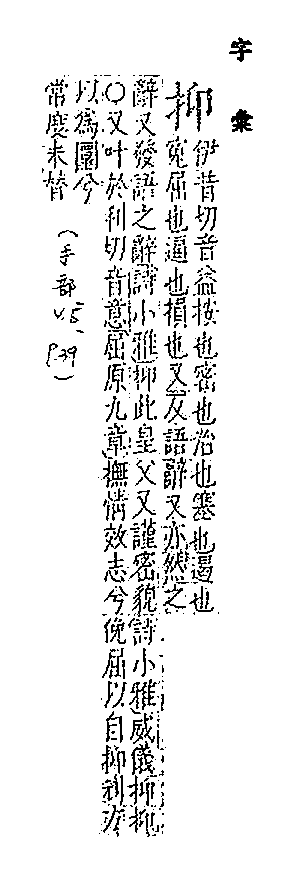 字彙
抑 伊昔切音益按也密也治也塞也遏也
冤屈也逼也損也又反語辭又亦然之
辭又發語之辭詩小雅抑此皇父又謹密貌詩小雅威儀抑抑
○又叶於利切音意屈原九章撫情效志兮俛屈以自抑刓方
以爲圜兮
常度未替
(手部
v.5、
p.39)